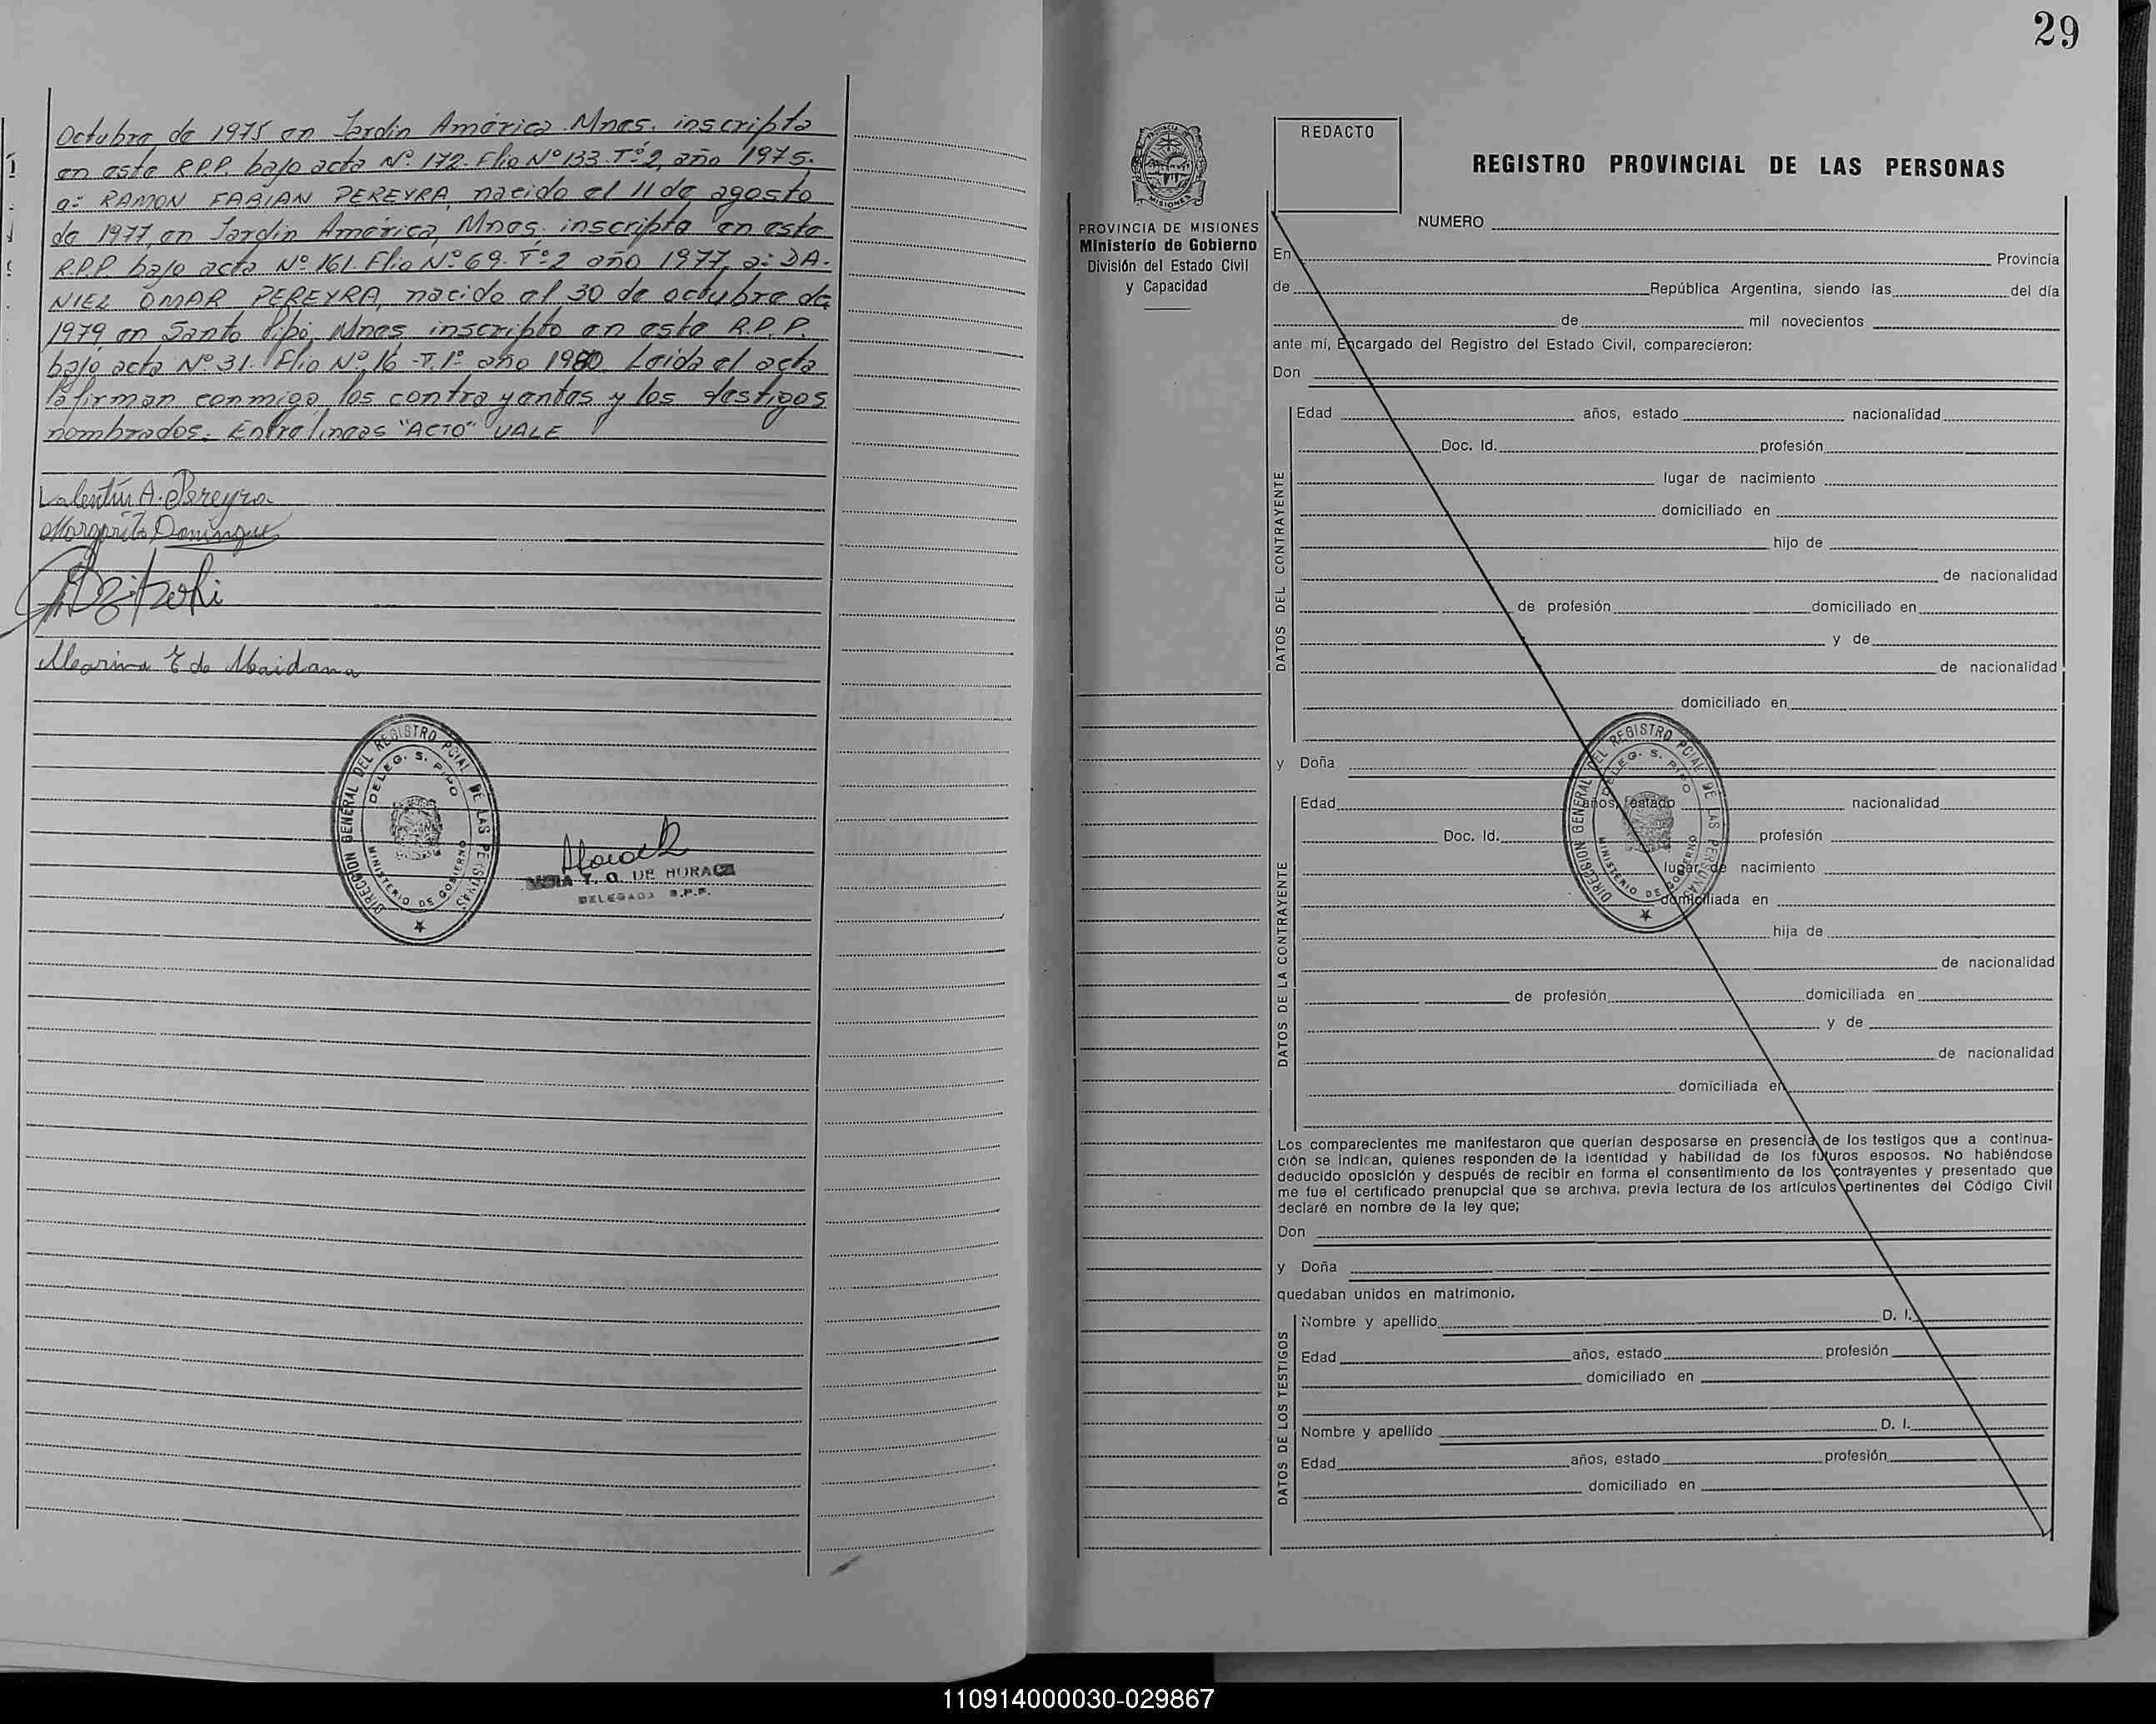 Octubre de 1975 en Jardin América Mnes. inscripta
en este R.P.P. bajo acta Nº 172. Flio Nº 133. Tº 2, año 1975.
a: RAMON FABIAN PEREYRA, nacido el 11 de agosto
de 1977, en Jardin América, Mnes. inscripto en este
R.P.P bajo acta Nº 161. Flio Nº 69. Tº 2 año 1977, a: DA-
NIEL OMAR PEREYRA, nacido el 30 de octubre de
1979 en Santo Pipó, Mnes inscripto en este R.P.P.
bajo acta Nº 31. Flio Nº 16 -T. 1º año 1980. Leida el acta
la firman conmigo los contrayentes y los testigos
nombrados. Entrelineas "ACTO" VALE
Valentín A. Pereyra
Margarita Dominguez
Marina E de Maidana
DIRECCION GENERAL DEL REGISTRO PCIAL DE LAS PERSONAS
DELEG. S. PIPO
MINISTERIO DE GOBIERNO
T. Q. DE HORACZ
DELEGADA R.P.P.
29
PROVINCIA DE MISIONES
Ministerio de Gobierno
División del Estado Civil
y Capacidad
MISIONES
REDACTO
REGISTRO PROVINCIAL DE LAS PERSONAS
NUMERO
En Provincia
de República Argentina, siendo las del día
de mil novecientos
ante mí, Encargado del Registro del Estado Civil, comparecieron:
Don
DATOS DEL CONTRAYENTE
Edad años, estado nacionalidad
Doc. Id. profesión
lugar de nacimiento
domiciliado en
hijo de
de nacionalidad
de profesión domiciliado en
y de
de nacionalidad
domiciliado en
y Doña
DATOS DE LA CONTRAYENTE
Edad años, estado nacionalidad
Doc. Id. profesión
lugar de nacimiento
domiciliada en
hija de
de nacionalidad
de profesión domiciliada en
y de
de nacionalidad
domiciliada en
DIRECCION GENERAL DEL REGISTRO PCIAL DE LAS PERSONAS
DELEG. S. PIPO
MINISTERIO DE GOBIERNO
Los comparecientes me manifestaron que querían desposarse en presencia de los testigos que a continua-
ción se indican, quienes responden de la identidad y habilidad de los futuros esposos. No habiéndose
deducido oposición y después de recibir en forma el consentimiento de los contrayentes y presentado que
me fue el certificado prenupcial que se archiva, previa lectura de los artículos pertinentes del Código Civil
declaré en nombre de la ley que;
Don
y Doña
quedaban unidos en matrimonio.
DATOS DE LOS TESTIGOS
Nombre y apellido D. I.
Edad años, estado profesión
domiciliado en
Nombre y apellido D. I.
Edad años, estado profesión
domiciliado en
110914000030-029867